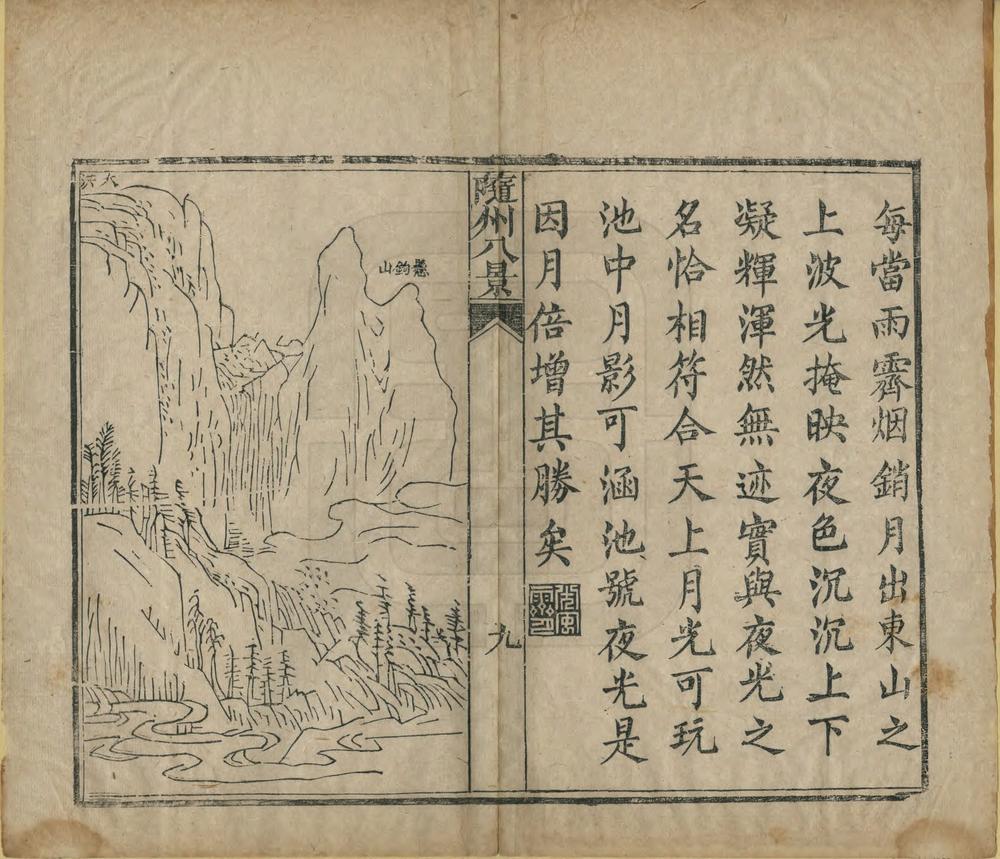 每當雨霽烟銷月出東山之
上波光掩映夜色沉沉上下
凝輝渾然無迹實與夜光之
名恰相符合天上月光可玩
池中月影可涵池號夜光是
因月倍增其勝矣
隨州八景
九
懸鉤山
大洪